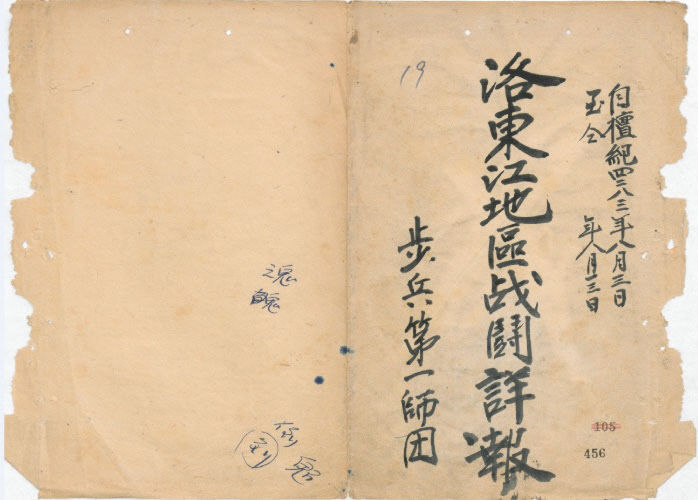 自檀紀四二八三年八月三日
至仝 年八月一三日
洛東江地區战闘詳報
步兵第一師団
19
105
456
魂
魄
鬼